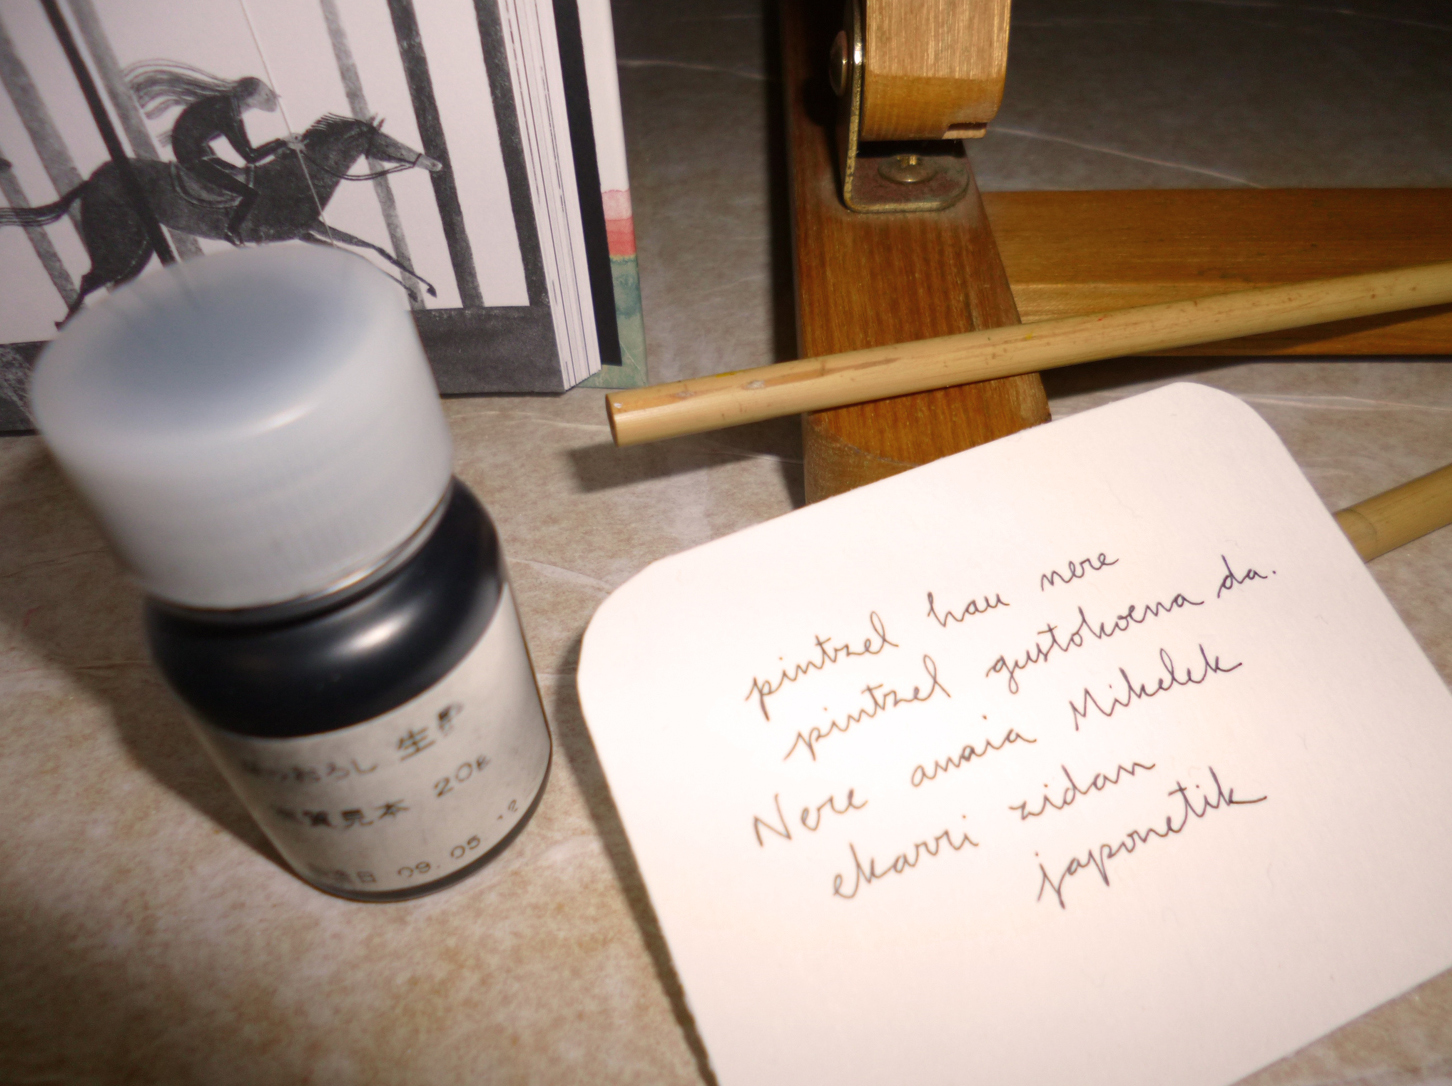 生
見本 20g
09.05
pintzel hau nere
pintzel gustokoena da.
Nere anaia Mikelek
ekarri zidan
japonetik